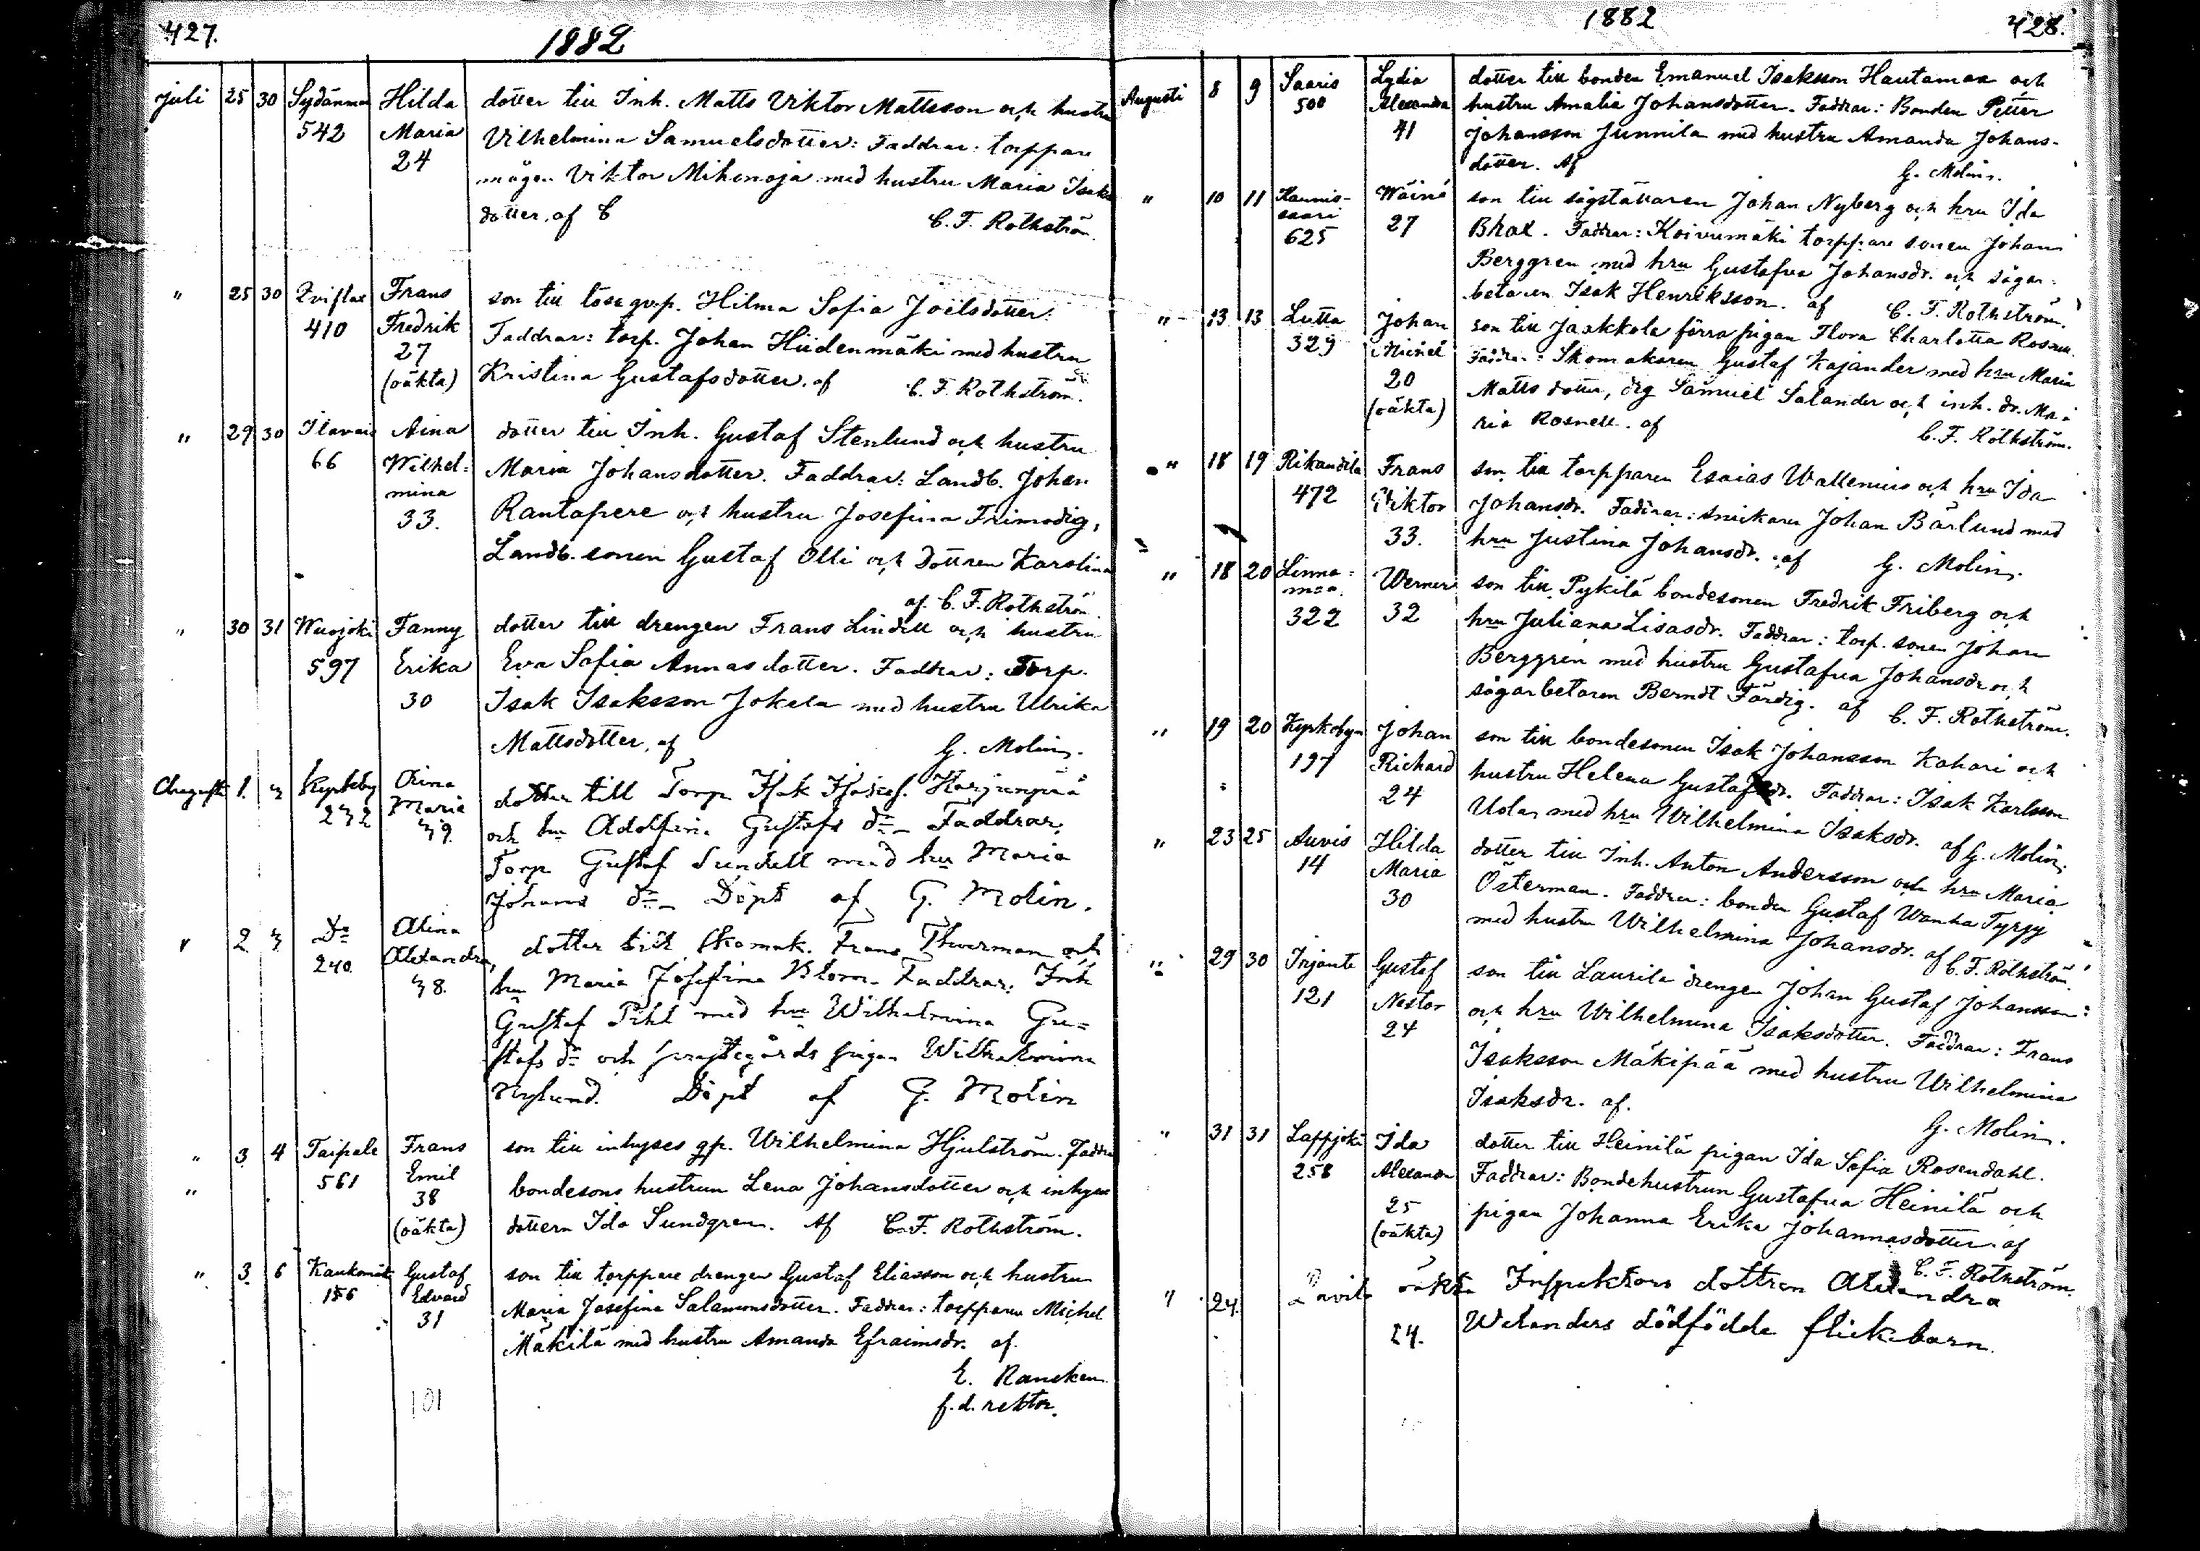 427.
1882
juli 25 30 Sydänmaa Hilda dotter till Inh. Matts Viktor Mattsson och hustru
542 Maria Vilhelmina Samuelsdotter: Faddrar: torppare
24 mågen Viktor Mihinoja med hustru Maria Isaks
dotter, af C C. F. Rothström.
" 25 30 Qviflax Frans son till lösa qvp. Hilma Sofia Joelsdotter.
410 Fredrik Faddrar: torp. Johan Hiidenmäki med hustru
27 Kristina Gustafsdotter. af C. F. Rothström.
(oäkta)
" 29 30 Ilavais Aina dotter till Inh. Gustaf Stenlund och hustru
66 Wilhel- Maria Johansdotter. Faddrar: Landb. Johan
mina Rantapere och hustru Josefina Frimodig,
33. Landb. sonen Gustaf Olli och dottren Karolina
af C. F. Rothström
" 30 31 Wuojoki Fanny dotter till drengen Frans Lindell och hustru
597 Erika Eva Sofia Annasdotter. Faddrar: Torp.
30 Isak Isaksson Jokela med hustru Ulrika
Mattsdotter, af G. Molin.
Augusti 1. 3 Kyrkoby Aina dotter till Torp Isak Isaksf. Karjunpää
232 Maria och hu Adolfina Gustafs dr Faddrar,
39. Torp Gustaf Sundell med hu Maria
Johans dr Döpt af G. Molin.
" 2 3 Do Alina dotter till skomak. Frans Thurman och
240. Alexandra, hu Maria Josefina Blom. Faddrar: Inh
38. Gustaf Pihl med hu Wilhelmina Gu-
stafs dr och prestegårds pigan Wilhelmina
Nylund. Döpt af G. Molin
" 3 4 Taipale Frans son till inhyses qp. Wilhelmina Hjulström. Faddra
" 561 Emil bondesons hustrun Lena Johansdotter och inhyses
38 dottern Ida Sundgren. Af C. F. Rothström.
(oäkta)
" 3. 6 Kaukomäki Gustaf son till torppare drengen Gustaf Eliasson och hustru
156 Edvard Maria Josefina Salamonsdotter. Faddrar: torpparen Michel
31 Mäkilä med hustru Amanda Efraimsdr. af.
E. Rancken
f. d. rektor.
101
1882
428.
Augusti 8 9 Saaris Lydia dotter till bonden Emanuel Isaksson Hautamaa och
500 Alexandra hustru Amalia Johansdotter. Faddrar: Bonden Petter
41 Johansson Junnila med hustru Amanda Johans-
dotter. Af G. Molin.
" 10 11 Kaunis- Wäinö son till sågställaren Johan Nyberg och hru Ida
saari 27 Bkal. Faddrar: Koivumäki torppare sonen Johan
625 Berggren med hru Gustafva Johansdr. och sågar-
betaren Isak Henriksson. af C. F. Rothström.
" 13 13 Lutta Johan son till Jaakkola förra pigan Flora Charlotta Rosnell.
329 Michel Faddrar: Skomakaren Gustaf Kajander med hru Maria
20 Matts dotter, drg Samuel Salander och inh. dr. Ma
(oäkta) ria Rosnell. af C. F. Rothström.
" 18 19 Rikandila Frans son till torpparen Esaias Wallenius och hru Ida
472 Viktor Johansdr. Faddrar: snickaren Johan Bärlund med
33. hru Justina Johansdr. af G. Molin.
" 18 20 Linna- Werner son till Pykilä bondesonen Fredrik Friberg och
maa. 32 hru Juliana Lisasdr. Faddrar: torp. sonen Johan
322 Berggren med hustru Gustafva Johansdr och
sågarbetaren Berndt Färdig. af C. F. Rothström.
" 19 20 Kyrkobyn Johan son till bondesonen Isak Johansson Kahari och
197 Richard hustru Helena Gustafsdr. Faddrar: Isak Karlsson
24 Uola med hru Wilhelmina Isaksdr. af G. Molin.
" 23 25 Auvis Hilda dotter till Inh. Anton Andersson och hru Maria
14 Maria Österman. Faddrar: bonden Gustaf Wanha Tyrjy
30 med hustru Wilhelmina Johansdr. af C. F. Rothström
" 29 30 Irjante Gustaf son till Laurila drengen Johan Gustaf Johansson
121 Nestor och hru Wilhelmina Isaksdotter. Faddrar: Frans
24 Isaksson Mäkipää med hustru Wilhelmina
Isaksdr. af. G. Molin.
" 31 31 Lappjoki Ida dotter till Heinilä pigan Ida Sofia Rosendahl.
258 Alexandra Faddrar: Bondehustrun Gustafva Heinilä och
25 pigan Johanna Erika Johannasdotter. af
(oäkta) C. F. Rothström.
" 24. oäkta Inspektors dottren Alexandra
24. Welanders dödfödda flickebarn.